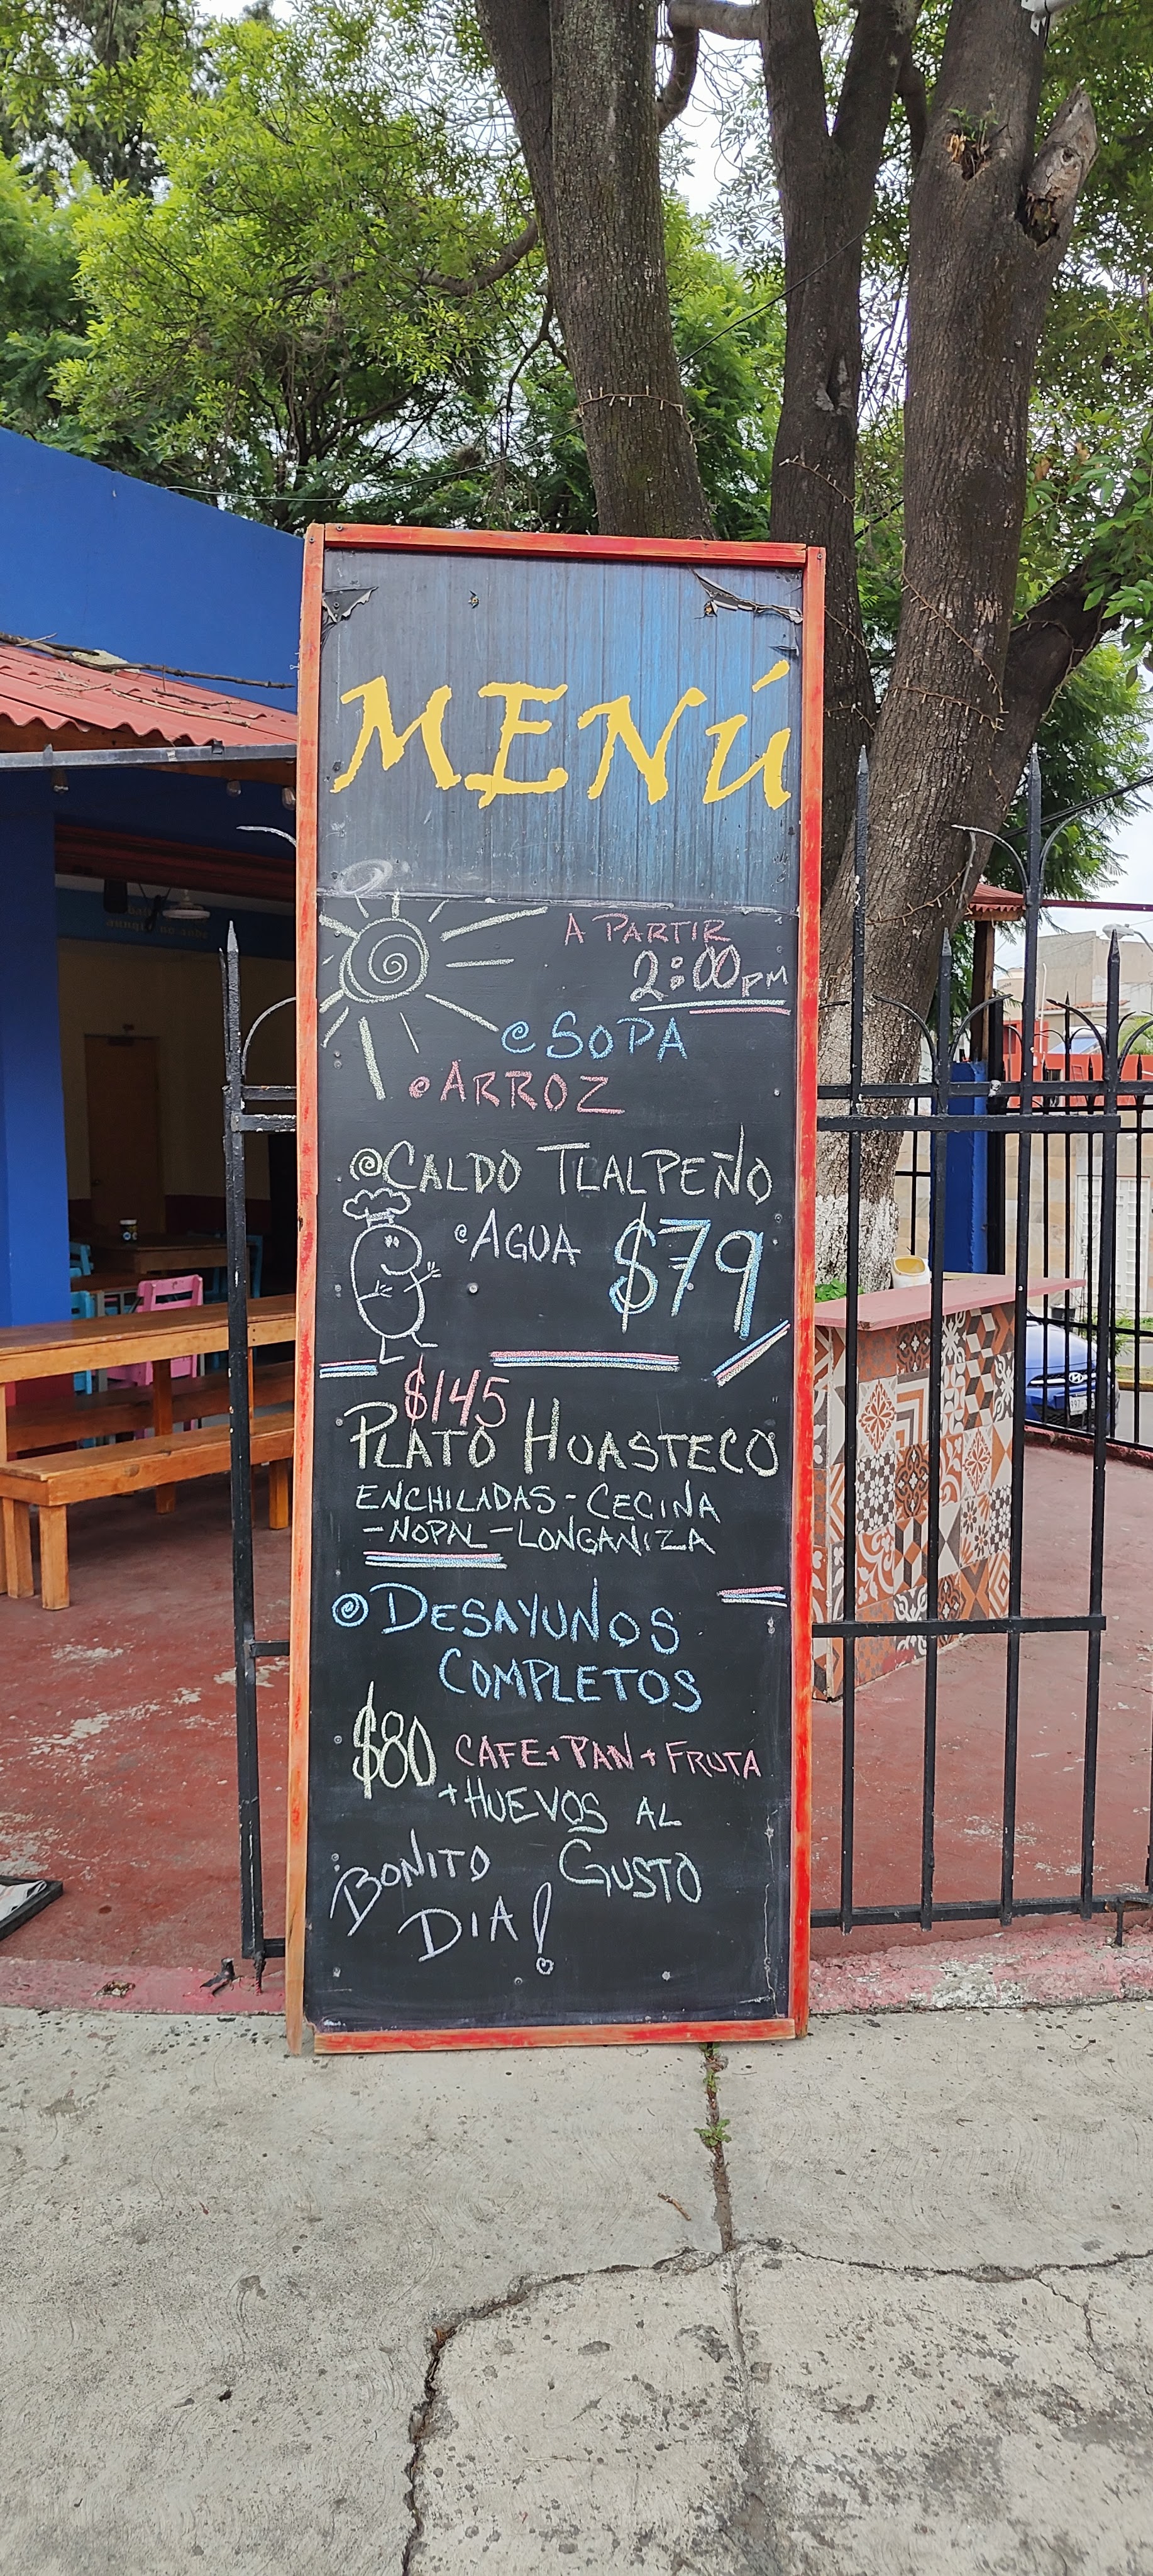 MENÚ
A PARTIR
2:00 PM
SOPA
ARROZ
CALDO TLALPEÑO
AGUA $79
$145
PLATO HUASTECO
ENCHILADAS - CECINA
- NOPAL - LONGANIZA
DESAYUNOS
COMPLETOS
$80 CAFE + PAN + FRUTA
+ HUEVOS AL
GUSTO
¡BONITO
DIA!